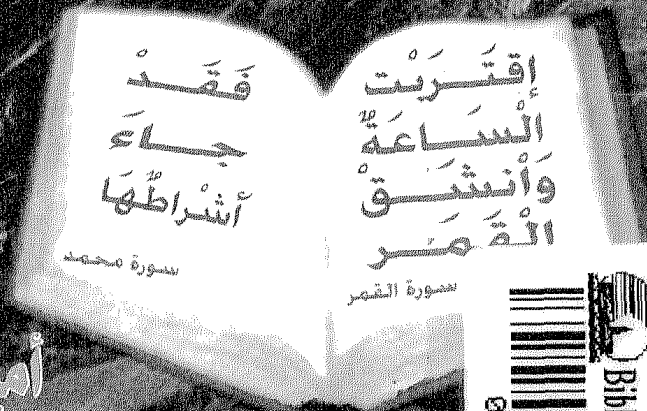 إقتَرَبْت
الْسَاعَةُ
وَاْنشَقْ
الْقَمَر
سورة القمر
فَقَدْ
جاءَ
أشْراطُهَا
سورة محمد
Bibl